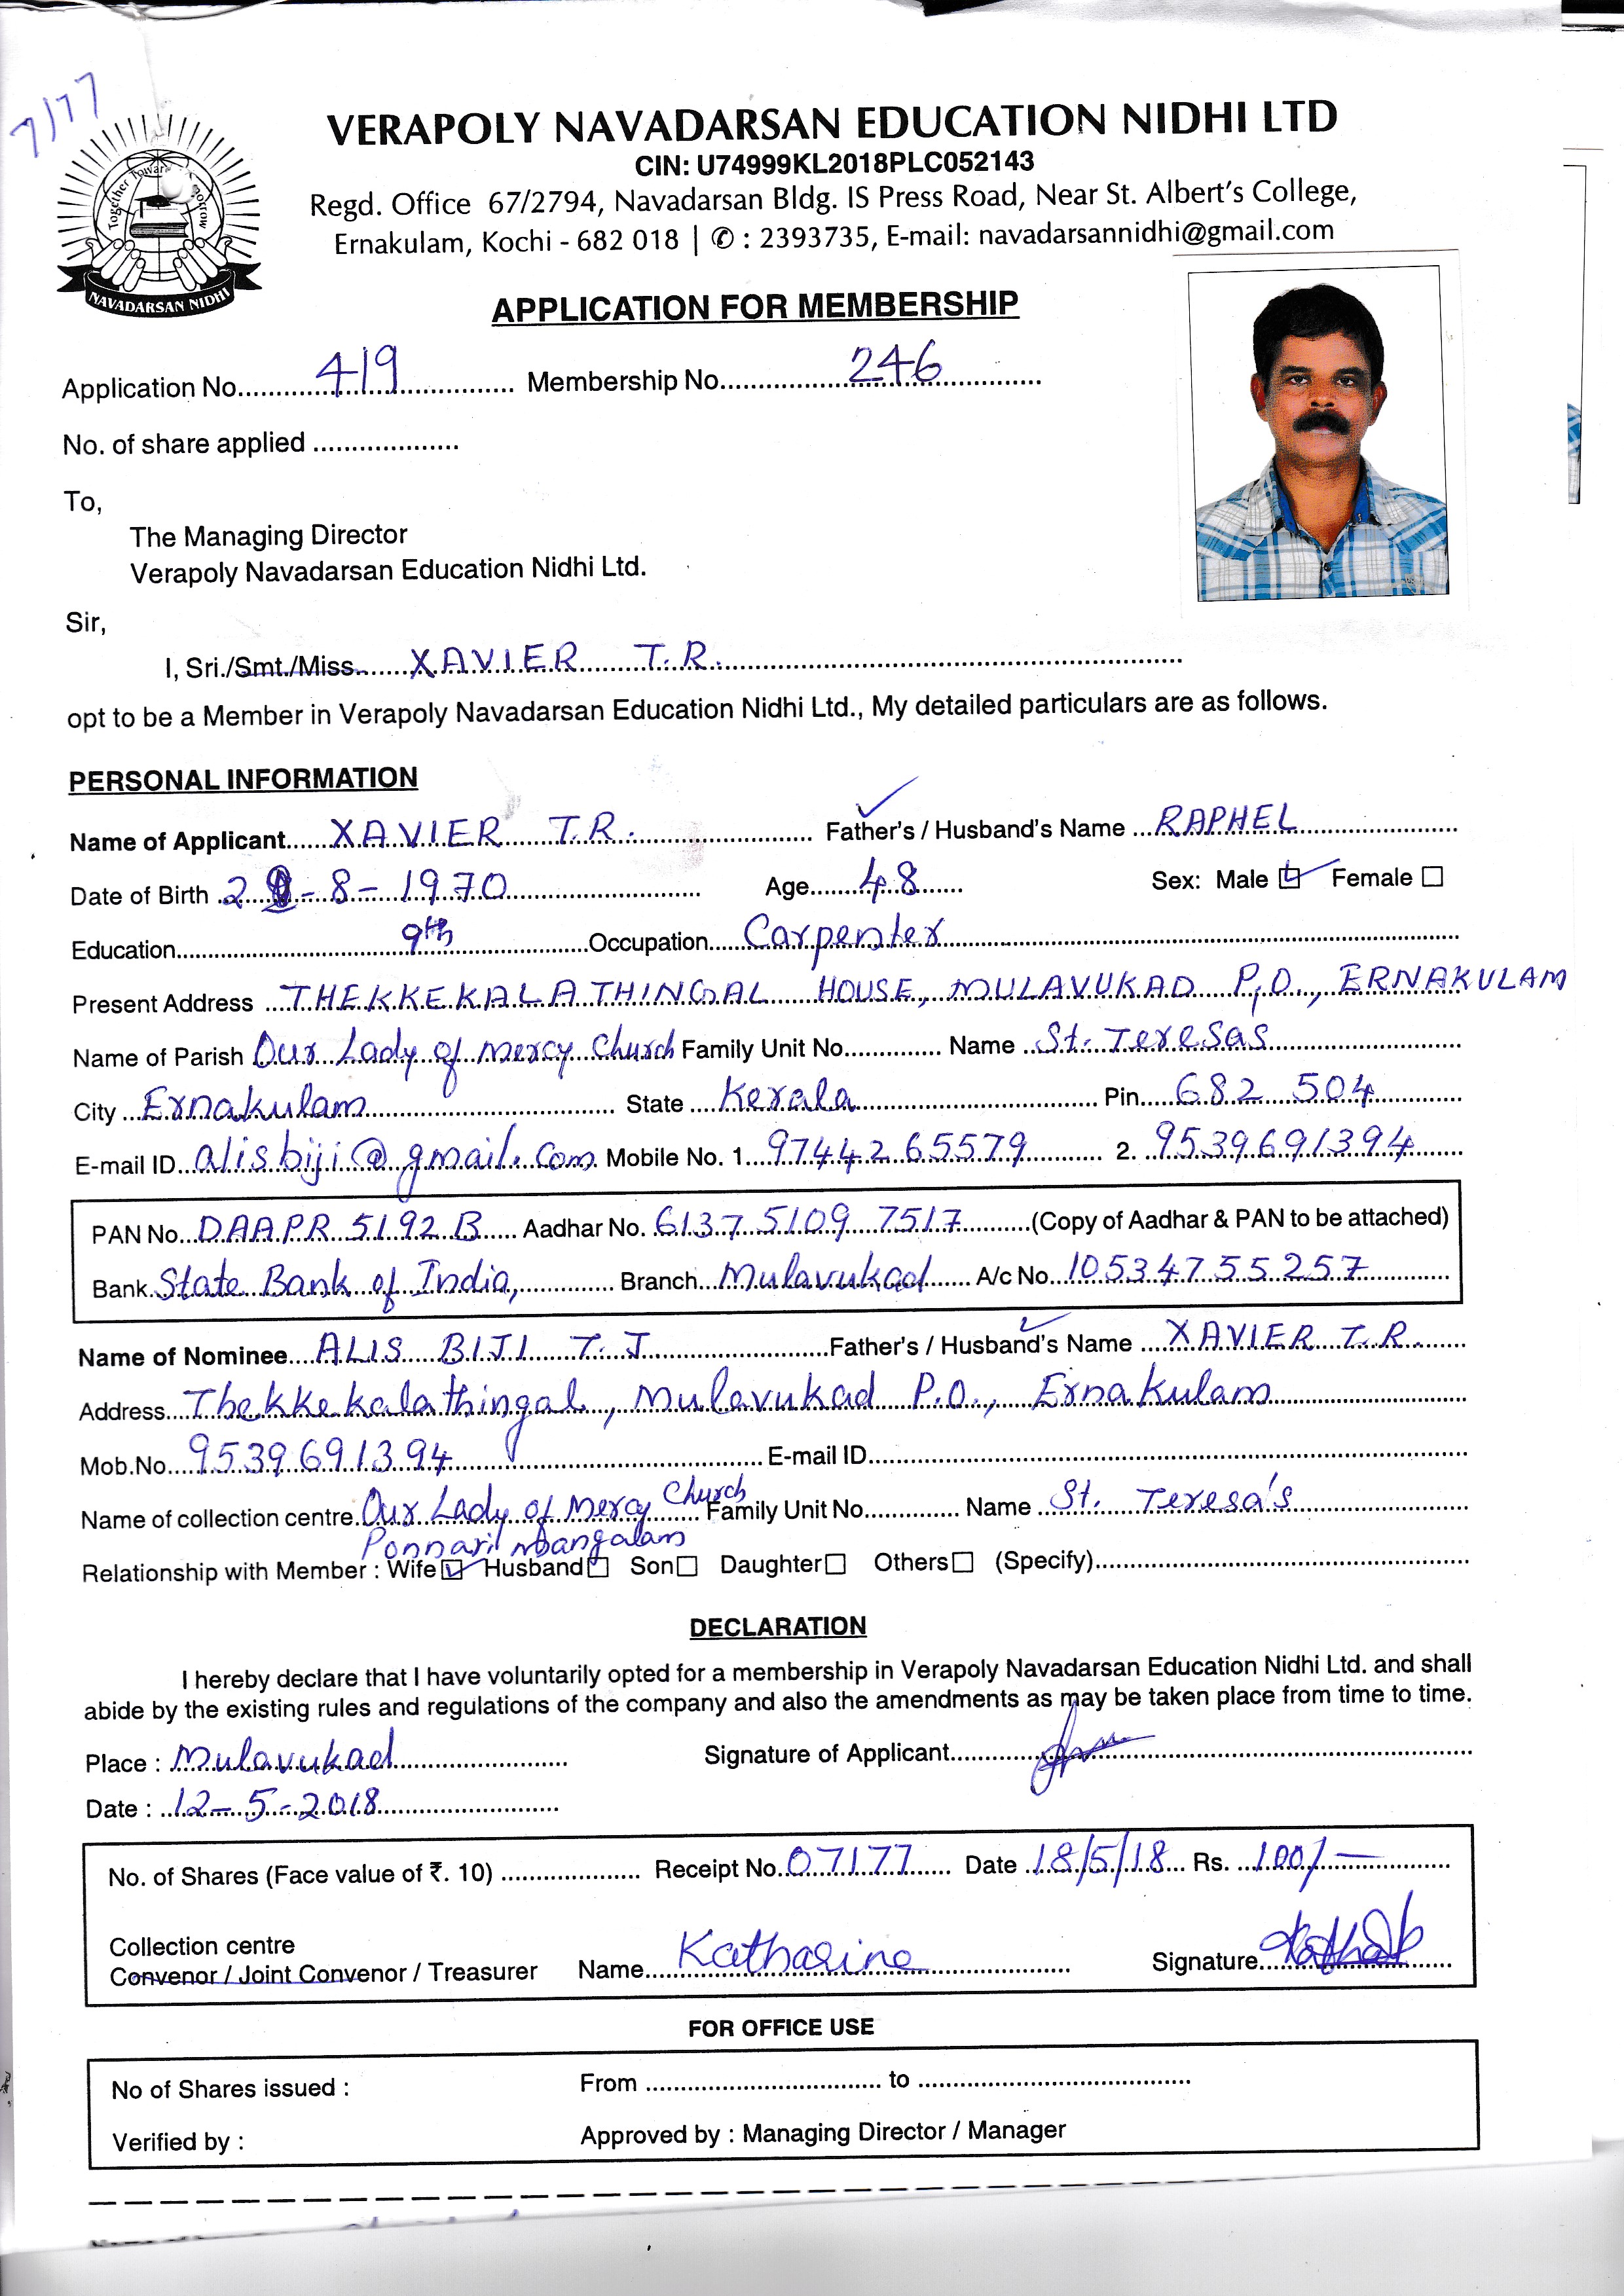 7177
Together Towards Tomorrow
NAVADARSAN NIDHI
VERAPOLY NAVADARSAN EDUCATION NIDHI LTD
CIN: U74999KL2018PLC052143
Regd. Office 67/2794, Navadarsan Bldg. IS Press Road, Near St. Albert's College,
Ernakulam, Kochi - 682 018 | ✆ : 2393735, E-mail: navadarsannidhi@gmail.com
APPLICATION FOR MEMBERSHIP
Application No. 419 Membership No. 246
No. of share applied
To,
The Managing Director
Verapoly Navadarsan Education Nidhi Ltd.
Sir,
I, Sri./Smt./Miss. XAVIER T.R.
opt to be a Member in Verapoly Navadarsan Education Nidhi Ltd., My detailed particulars are as follows.
PERSONAL INFORMATION
Name of Applicant XAVIER T.R. Father's / Husband's Name RAPHEL
Date of Birth - 8 - 1970 Age 48 Sex: Male ☑ Female ☐
Education 9th Occupation Carpenter
Present Address THEKKEKALATHINGAL HOUSE, MULAVUKAD P.O., ERNAKULAM
Name of Parish Our Lady of Mercy Church Family Unit No. Name St. Teresas
City Ernakulam State Kerala Pin 682 504
E-mail ID alisbiji@gmail.com Mobile No. 1. 9744265579 2. 9539691394
PAN No. DAAPR 5192 B Aadhar No. 6137 5109 7517 (Copy of Aadhar & PAN to be attached)
Bank State Bank of India, Branch Mulavukad A/c No. 10534755257
Name of Nominee ALIS BIJI T.J Father's / Husband's Name XAVIER T.R.
Address Thekkekalathingal, Mulavukad P.O., Ernakulam
Mob.No. 9539691394 E-mail ID
Name of collection centre Our Lady of Mercy Church Family Unit No. Name St. Teresa's
Ponnarimangalam
Relationship with Member : Wife ☑ Husband ☐ Son ☐ Daughter ☐ Others ☐ (Specify)
DECLARATION
I hereby declare that I have voluntarily opted for a membership in Verapoly Navadarsan Education Nidhi Ltd. and shall
abide by the existing rules and regulations of the company and also the amendments as may be taken place from time to time.
Place : Mulavukad Signature of Applicant
Date : 12-5-2018
No. of Shares (Face value of ₹. 10) Receipt No. 07177 Date 18/5/18 Rs. 100/-
Collection centre
Convenor / Joint Convenor / Treasurer Name Katharine Signature
FOR OFFICE USE
No of Shares issued : From to
Verified by : Approved by : Managing Director / Manager